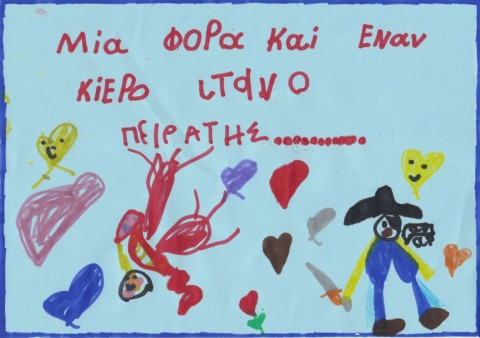 Μiα ΦΟΡα Και ΕΝΑΝ
ΚiΕΡΟ ιΤαΝ Ο
ΠΕΙΡΑΤΗΣ.............